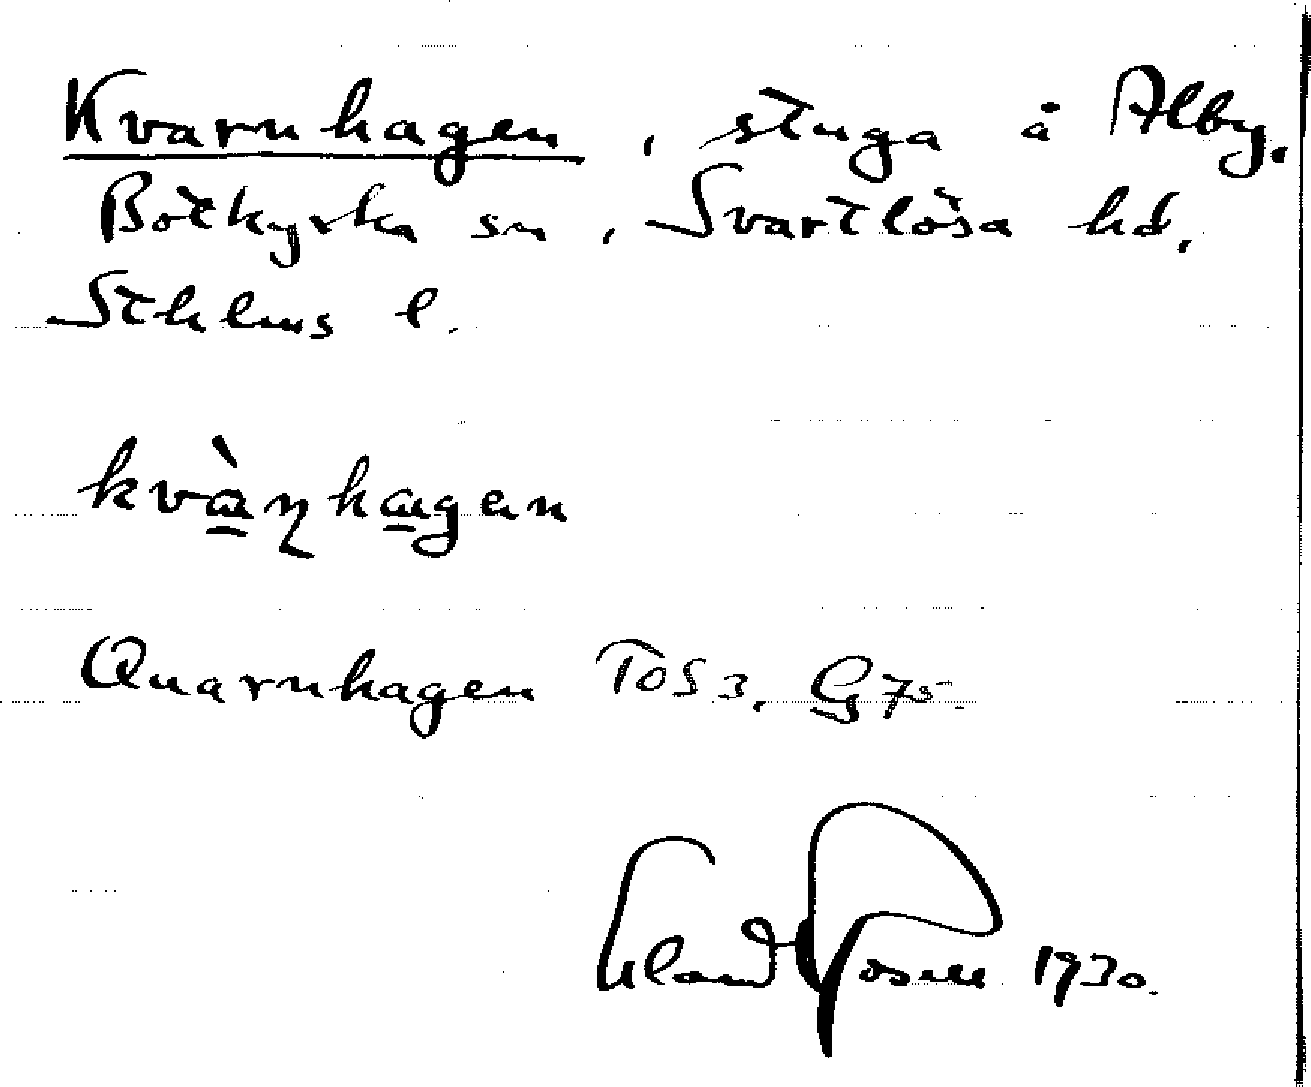 Kvarnhagen, stuga å Alby,
Botkyrka sn, Svartlösa hd,
Sthlms l.
kvànhagen
Quarnhagen TOS 3, G 75
1930.